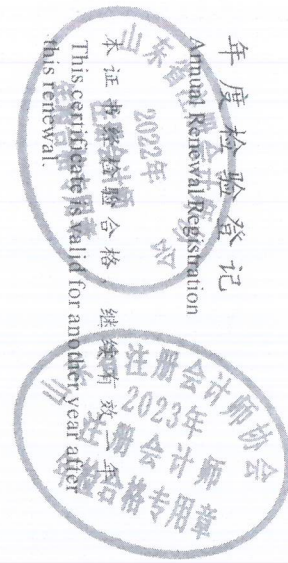 年度检验登记
Annual Renewal Registration
本证书经检验合格，继续有效一年。
This certificate is valid for another year after
this renewal.
山东省注册会计师协会
2022年
注册会计师
年检合格专用章
山东省注册会计师协会
2023年
注册会计师
年检合格专用章